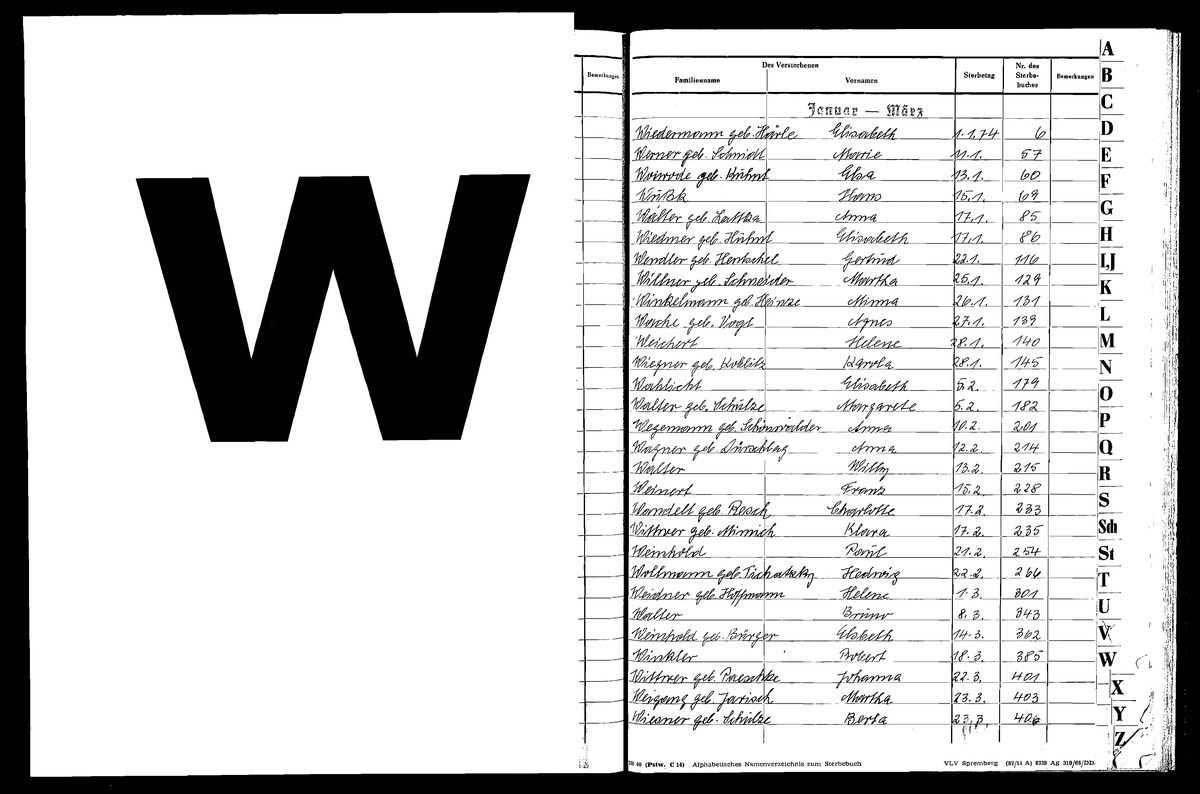 W
Bemerkungen
Des Verstorbenen
Familienname Vornamen Sterbetag Nr. des Sterbebuches Bemerkungen
Januar — März
Wiedermann geb. Härle Elisabeth 1.1.74 6
Werner geb. Schmidt Marie 11.1. 57
Woirode geb. Kuhnt Elsa 13.1. 60
Hans 15.1. 69
Walter geb. Lattka Anna 17.1. 85
Wiedmer geb. Huhnt Elisabeth 17.1. 86
Wendler geb. Hentschel Gertrud 22.1. 116
Willner geb. Schneider Martha 25.1. 129
Winkelmann geb. Heinze Minna 26.1. 131
geb. Vogt Agnes 27.1. 139
Weichert Helene 28.1. 140
Wiegner geb. Koblitz Karola 28.1. 145
Wahlicht Elisabeth 5.2. 179
Walter geb. Schulze Margarete 5.2. 182
Wegemann geb. Schönwälder Anna 10.2. 201
Wagner geb. Dürschlag Anna 12.2. 214
Walter Willy 13.2. 215
Weinert Franz 15.2. 228
Wandelt geb. Resch Charlotte 17.2. 233
Wittwer geb. Mimich Klara 17.2. 235
Weinhold Paul 21.2. 254
Wollmann geb. Tischatzky Hedwig 22.2. 266
Weidner geb. Hoffmann Helene 1.3. 301
Walter Bruno 8.3. 343
Weinhold geb. Bürger Elsbeth 14.3. 362
Winkler Robert 18.3. 385
Wittwer geb. Raeschke Johanna 22.3. 401
Weigang geb. Jarisch Martha 23.3. 403
Wiesner geb. Schulze Berta 23.3. 406
40 (Pstw. C 14) Alphabetisches Namenverzeichnis zum Sterbebuch VLV Spremberg (87/11 A) 6739 Ag 310/66/DD.
A
B
C
D
E
F
G
H
I,J
K
L
M
N
O
P
Q
R
S
Sch
St
T
U
V
W
X
Y
Z